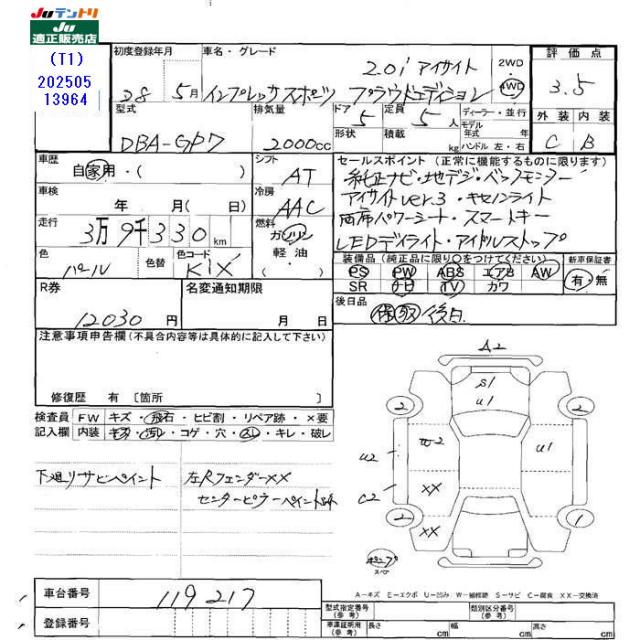 Juテントリ
Ju
適正販売店
(T1)
202505
13964
初度登録年月 車名・グレード 2WD 評価点
28 5月 インプレッサスポーツ 2.0i アイサイト プラウドエディション 4WD 3.5
型式 排気量 ドア 定員 ディーラー・並行 外装 内装
DBA-GP7 2000cc 5 5人 モデル年式 年 C B
形状 積載 kg ハンドル 左・右
車歴 自家用・( ) シフト AT
車検 年 月( 日) 冷房 AAC
走行 3万9千330km 燃料 ガソリン 軽油 ( )
色 パール 色替 色コード K1X
セールスポイント (正常に機能するものに限ります)
純正ナビ・地デジ・バックモニター
アイサイトver.3・キセノンライト
両席パワーシート・スマートキー
LEDデイライト・アイドルストップ
装備品(純正品に限り○をつけてください) 新車保証書
PS PW ABS エアB AW 有・無
SR ナビ TV カワ
R券 12030円 名変通知期限 月 日
後日品 保 取 後日
注意事項申告欄(不具合内容等は具体的に記入して下さい)
修復歴 有 [箇所 ]
検査員 FW キズ・飛石・ヒビ割・リペア跡・×要
記入欄 内装 キズ・汚れ・コゲ・穴・スレ・キレ・破レ
下廻リサビペイント
左Rフェンダー××
センターピラーペイント
A2
S1
U1
2
2
U2
W2
U1
C2
XX
XX
2
1
スペア
A－キズ E－エクボ U－凹み W－補修跡 S－サビ C－腐食 XX－交換済
車台番号 119217
登録番号
型式指定番号(参考) 類別区分番号(参考)
車庫証明用(参考) 長さ cm 幅 cm 高さ cm